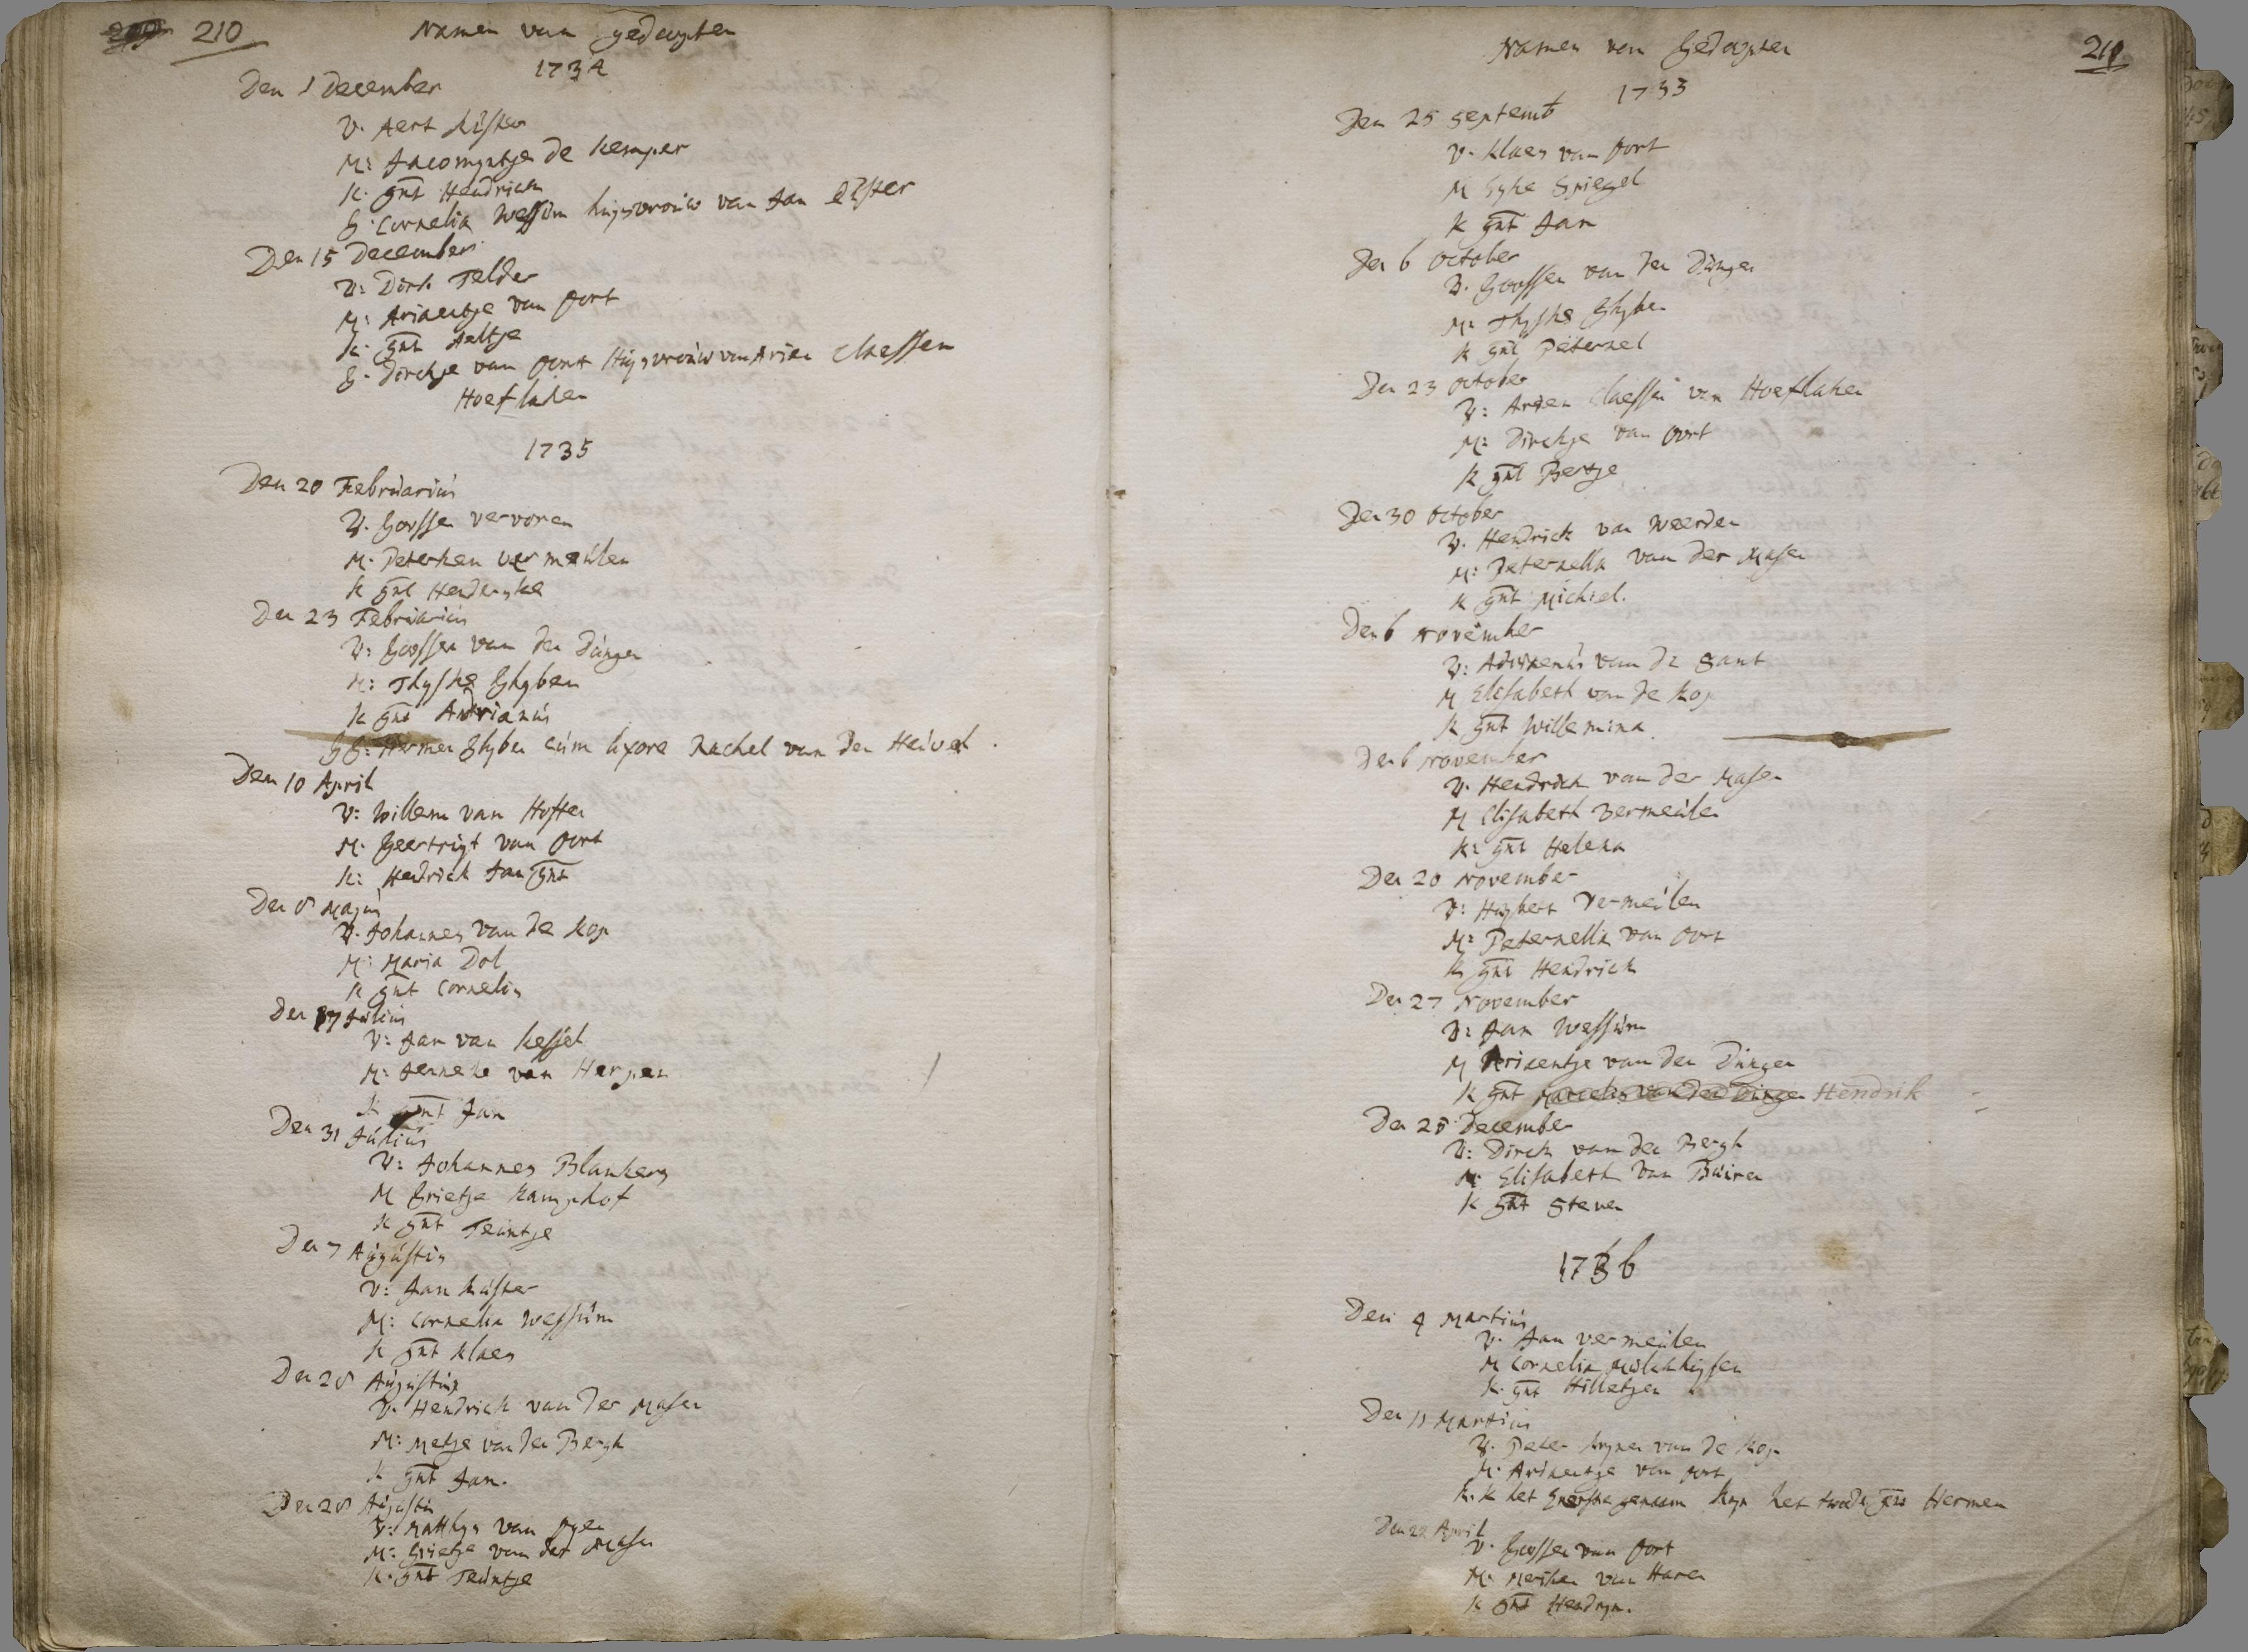 210
Namen van gedoopten
1734
Den 1 December
V. Aert Kuster
M: Jacomyntje de Kemper
K. gnt Hendrick
G. Cornelia Wessum huysvrouw van Jan Kuster
Den 15 December
V: Dirk Telder
M: Ariaentje van Oort
K. gnt Aeltje
G. Dirckje van Oort Huysvrouw van Arien Claessen
Hoeflaken
1735
Den 20 Februarius
V. Goossen vervoren
M. Peterken vermeulen
K gnt Henderske
Den 23 Februarius
V: Goossen van den Dungen
M: Thyske Ghyben
K gnt Adrianus
GG: Hermen Ghyben cum Uxore Rachel van den Heuvel.
Den 10 April
V: Willem van Hoften
M. Geertruyt van Oort
K: Hendrick Jan gnt
Den 8 Majus
V. Johannes van de Kop
M: Maria Dol
K gnt Cornelis
Den 17 Julius
V: Jan van Kessel
M: Jenneke van Herpen
K gnt Jan
Den 31 Julius
V: Johannes Blankers
M Grietje Kamphof
K gnt Teuntje
Den 7 Augustus
V: Jan Kuster
M: Cornelia Wessum
K gnt Klaes
Den 28 Augustus
V. Hendrick van der Masen
M: Metje van den Bergh
K gnt Jan.
Den 28 Augustus
V: Matthys van
M: Grietje van der Masen
K. gnt Teuntje
Namen van Gedoopten
211
1735
Den 25 Septemb
V. Klaes van Oort
M Eyke Spiegel
K gnt Jan
Den 6 October
V. Goossen van den Dungen
M: Thyske Ghyben
K gnt Peternel
Den 23 October
V: Arien Claessen van Hoeflaken
M: Dirckje van Oort
K gnt Bertje
Den 30 October
V. Hendrick van Weerden
M: Peternella van der Masen
K gnt Michiel.
Den 6 November
V: Adrianus van de Sant
M Elisabeth van de Kop
K gnt Willemina.
Den 6 November
V. Hendrick van der Masen
M Elisabeth Vermeulen
K: gnt Helena
Den 20 November
V: Huybert Vermeulen
M: Peternella van Oort
K gnt Hendrick
Den 27 November
V: Jan Wessum
M Ariaentje van den Dungen
K gnt Marcelis van den Dungen Hendrik
Den 25 December
V: Dirck van den Bergh
M: Elisabeth van Buiren
K gnt Steven
1736
Den 4 Martius
V. Jan vermeulen
M Cornelia
K. gnt Hilletjen
Den 11 Martius
V. Peter Krynen van de Kop
M. Ariaentje van Oort
K. K het eerste genaam Kryn het tweede gnt Hermen
Den 22 April
V. Goossen van Oort
M. Merken van Haren
K gnt Hendryn.